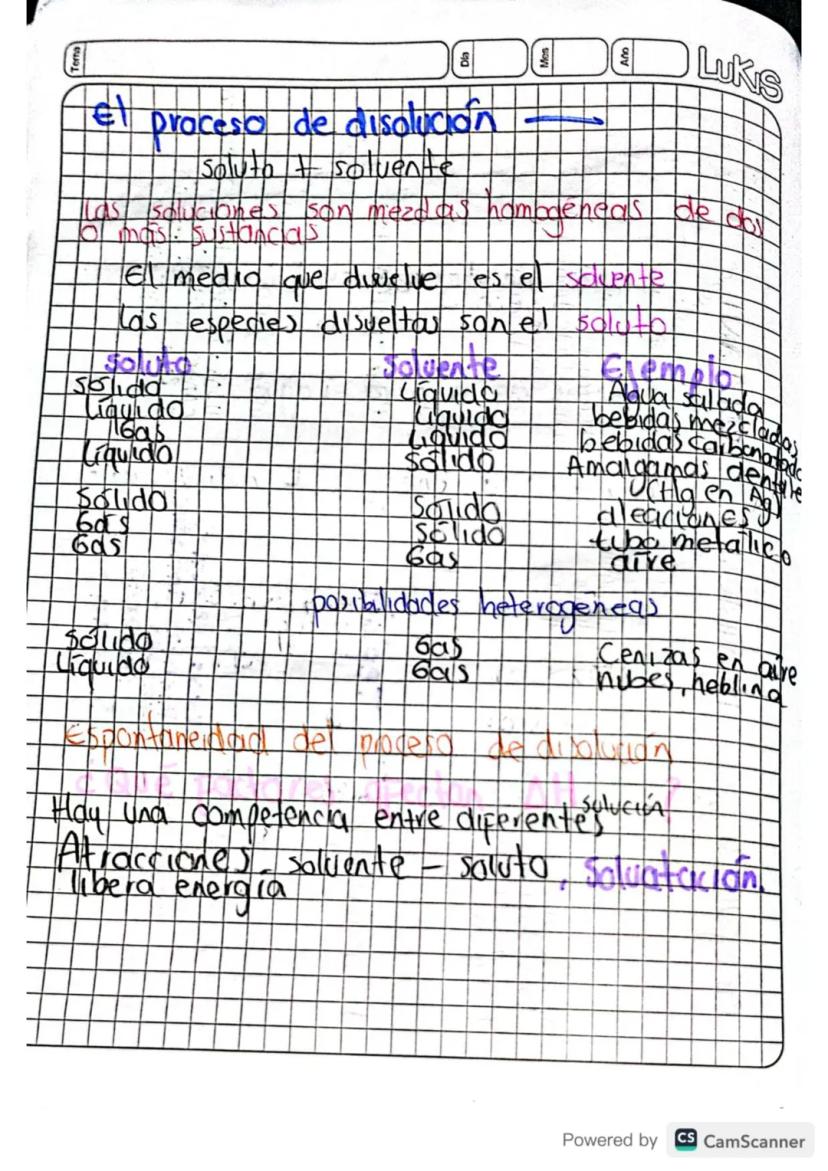 Tema Día Mes Año LUKIS
El proceso de disolución →
soluto + solvente
Las soluciones son mezclas homogéneas de dos
o más sustancias
El medio que disuelve es el solvente
Las especies disueltas son el soluto
soluto solvente Ejemplo
sólido Líquido Agua salada
Líquido Líquido bebidas mezcladas
Gas Líquido bebidas carbonatadas
Líquido sólido Amalgamas dentales
(Hg en Ag)
sólido Sólido aleaciones
Gas sólido tubo metálico
Gas Gas aire
posibilidades heterogéneas
sólido Gas Cenizas en aire
Líquido Gas nubes, neblina
Espontaneidad del proceso de disolución
¿Qué factores afectan ΔH solución?
Hay una competencia entre diferentes
Atracciones. solvente - soluto, Solvatación.
libera energía
Powered by CS CamScanner